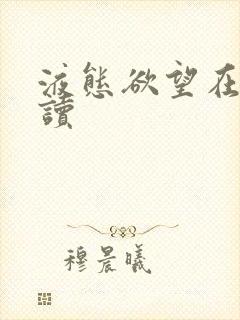 液態欲望在
讀
穆晨曦